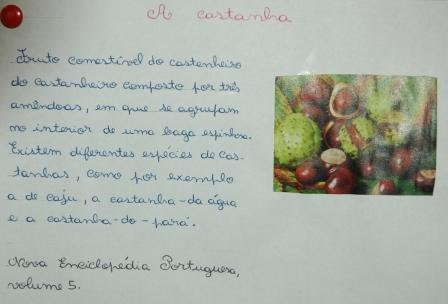 A castanha
Fruto comestível do castenheiro
do castanheiro composto por três
amêndoas, em que se agrupam
no interior de uma baga espinhosa.
Existem diferentes espécies de cas-
tanhas, como por exemplo
a de caju, a castanha-da água
e a castanha-do-pará.
Nova Enciclopédia Portuguesa,
volume 5.